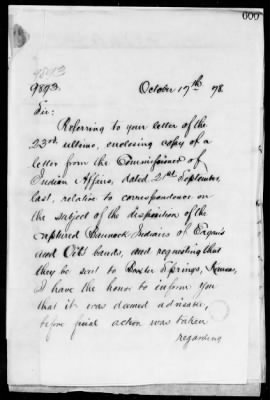 600
9893
9893.
October 17th 78
Sir:
Referring to your letter of the
23rd ultimo, enclosing copy of a
letter from the Commissioner of
Indian Affairs, dated 21st September
last, relative to correspondence on
the subject of the disposition of the
captured Bannock Indians of
and bands, and requesting that
they be sent to Baxter Springs, Kansas,
I have the honor to inform you
that it was deemed advisable,
before final action was taken
regarding